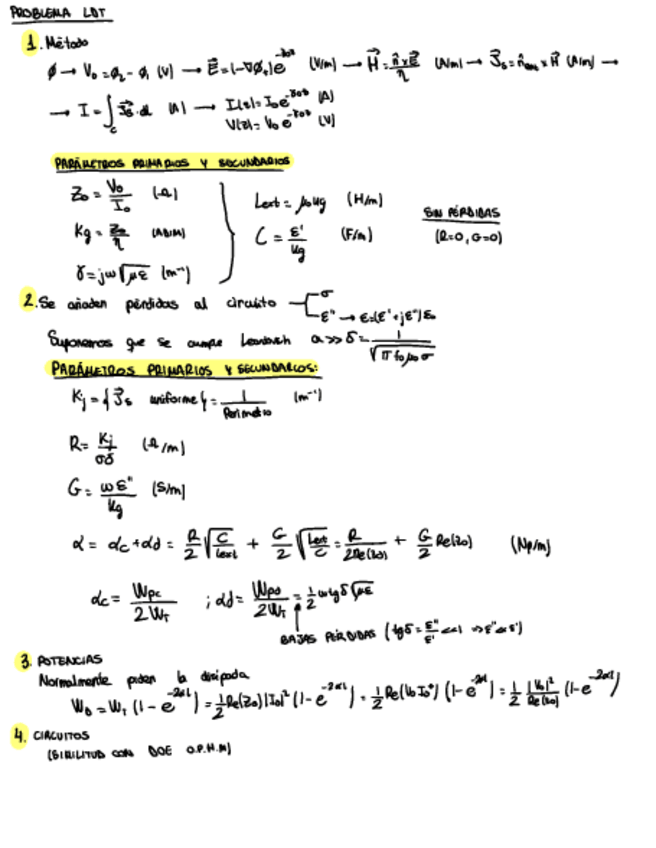 PROBLEMA LDT
1. Método
ϕ → V₀ = ϕ₂ - ϕ₁ (V) → E⃗ = (-∇ϕₜ)e^(-γ₀z) (V/m) → H⃗ = (n̂ × E⃗)/η (A/m) → J⃗s = n̂ × H⃗ (A/m) →
→ I = ∫c J⃗s · dl (A) → I(z) = I₀e^(-γ₀z) (A)
V(z) = V₀e^(-γ₀z) (V)
PARÁMETROS PRIMARIOS Y SECUNDARIOS
Z₀ = V₀/I₀ (Ω)
Kg = Z₀/η (ADIM)
γ = jω√(με) (m⁻¹)
Lext = μ₀kg (H/m)
C = ε'/kg (F/m)
SIN PÉRDIDAS
(R=0, G=0)
2. Se añaden pérdidas al circuito σ
ε'' → ε = (ε' + jε'')ε₀
Suponemos que se cumple Leontovich a >> δ = 1/√(π f₀ μ₀ σ)
PARÁMETROS PRIMARIOS Y SECUNDARIOS:
Kj = {J⃗s uniforme} = 1/Perímetro (m⁻¹)
R = Kj/(σδ) (Ω/m)
G = ωε''/kg (S/m)
α = αc + αd = R/2 √(C/Lext) + G/2 √(Lext/C) = R/(2Re(Z₀)) + G/2 Re(Z₀) (Np/m)
αc = Wpc/(2Wт) ; αd = Wpd/(2Wт) = 1/2 ω tgδ √(με)
BAJAS PÉRDIDAS (tgδ = ε''/ε' << 1 ⇒ ε'' << ε')
3. POTENCIAS
Normalmente piden la disipada
W_D = Wт (1 - e^(-2αl)) = 1/2 Re(Z₀)|I₀|² (1 - e^(-2αl)) = 1/2 Re(V₀I₀*) (1 - e^(-2αl)) = 1/2 |V₀|²/Re(Z₀) (1 - e^(-2αl))
4. CIRCUITOS
(SIMILITUD CON DOE O.P.H.M)